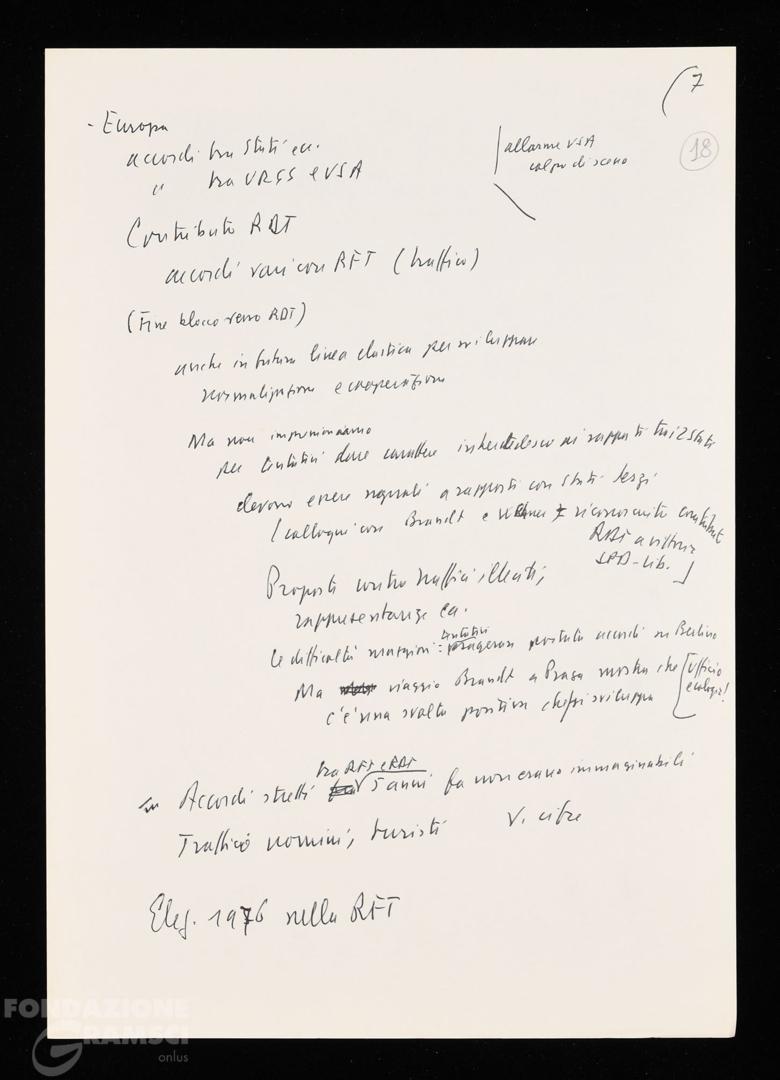 7
18
- Europa
accordi tra Stati ecc.
" tra URSS e USA
allarme USA
colpo di scena
Contributo RDT
accordi vari con RFT (traffico)
(Fine blocco verso RDT)
anche in futuro linea elastica per sviluppare
normalizzazione e cooperazione
Ma non
per tentativi dare carattere intertedesco ai rapporti tra i 2 Stati
devono essere uguali a rapporti con Stati terzi
(colloqui con Brandt e riconosciuto contributo
RDT a vittoria
SPD-Lib.]
Proposti contro traffici illeciti,
rappresentanze ecc.
le difficoltà maggiori: tentativi portata accordi su Berlino
Ma viaggio Brandt a Praga mostra che [Ufficio
ecologia!
c'è una svolta positiva che si sviluppa
Accordi stretti tra RFT e RDT 5 anni fa non erano immaginabili
Traffico uomini, turisti V. cifre
Elez. 1976 nella RFT
FONDAZIONE
GRAMSCI
onlus